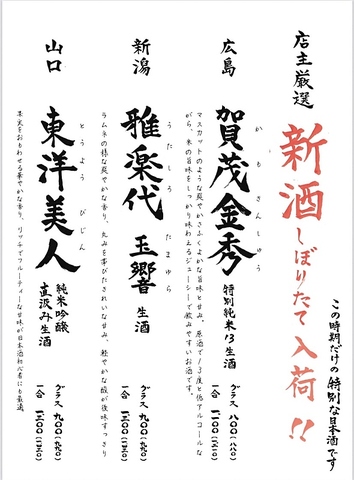 店主厳選
新酒しぼりたて入荷!!
この時期だけの特別な日本酒です
広島
かもきんしゅう
賀茂金秀
特別純米13生酒
グラス 八〇〇(八八〇)
一合
マスカットのような爽やかさふくよかな旨味と甘み。原酒で13度と低アルコールな
がら、米の旨味をしっかり味わえるジューシーで飲みやすいお酒です。
新潟
うたしろ たまゆら
雅楽代 玉響 生酒
グラス 九〇〇(九九〇)
一合
ラムネの様な爽やかな香り、丸みを帯びたきれいな甘み、軽やかな酸が後味すっきり
山口
とうようびじん
東洋美人
純米吟醸
直汲み生酒
グラス 九〇〇(九九〇)
一合
果実をおもわせる華やかな香り、リッチでフルーティーな甘味が日本酒初心者にも最適